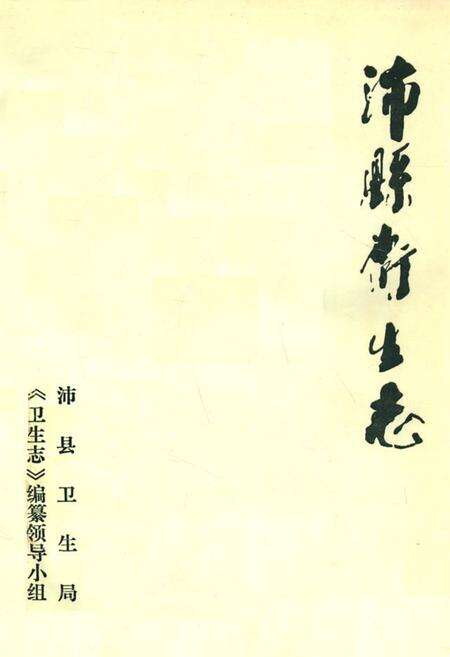 沛縣衛生志
沛县卫生局
《卫生志》编纂领导小组